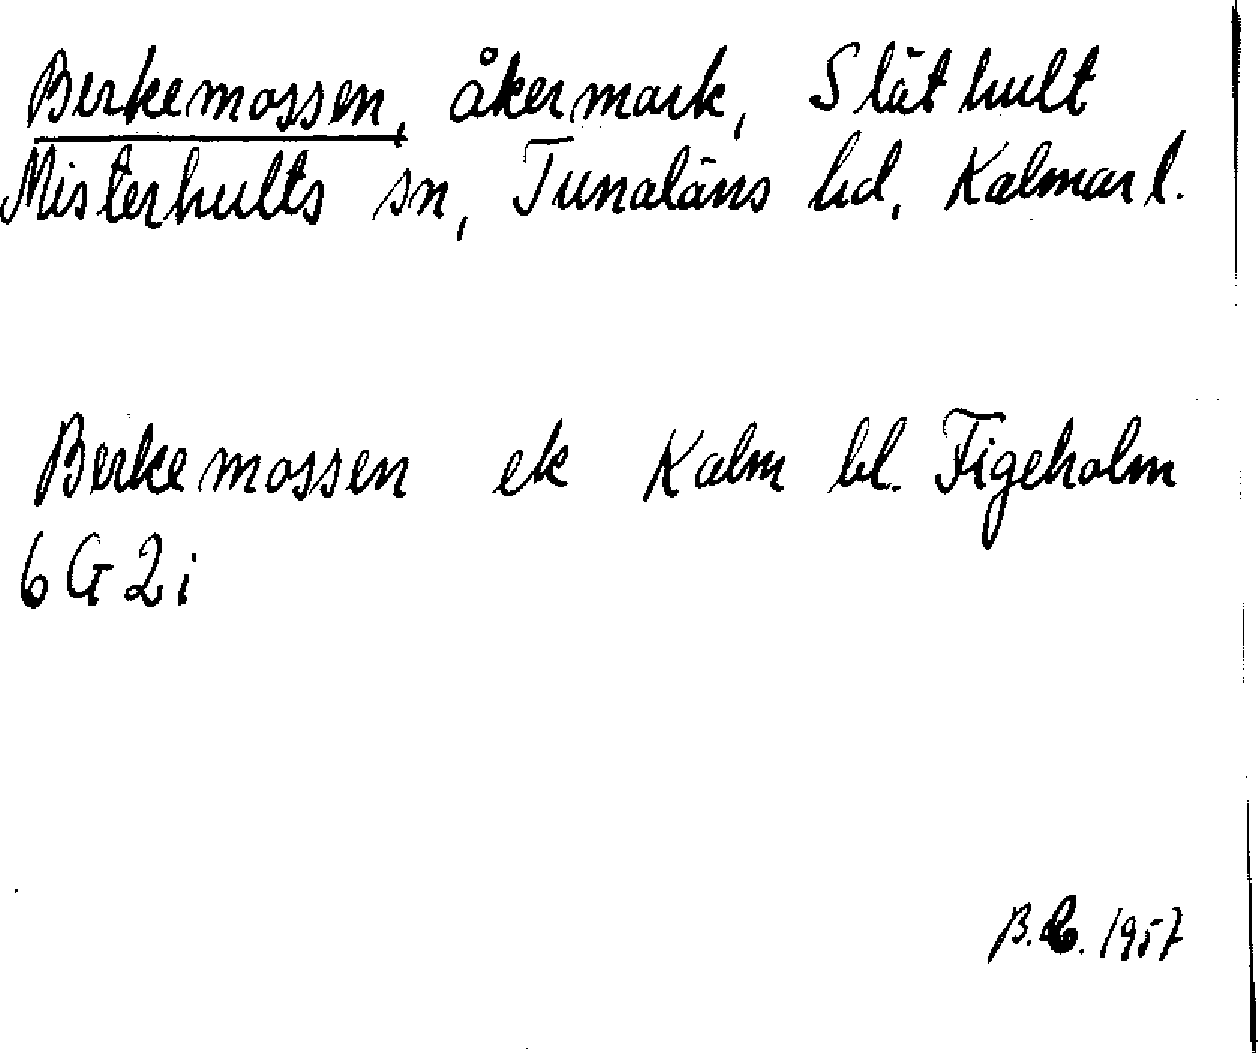 Berkemossen, åkermark, Släthult
Misterhults sn, Tunaläns hd, Kalmar l.
Berkemossen ek Kalm bl. Figeholm
6G2i
1957